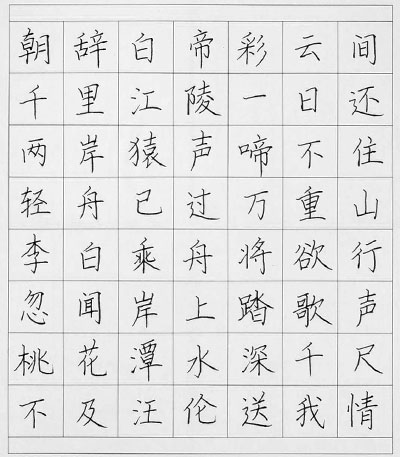 朝辞白帝彩云间
千里江陵一日还
两岸猿声啼不住
轻舟已过万重山
李白乘舟将欲行
忽闻岸上踏歌声
桃花潭水深千尺
不及汪伦送我情